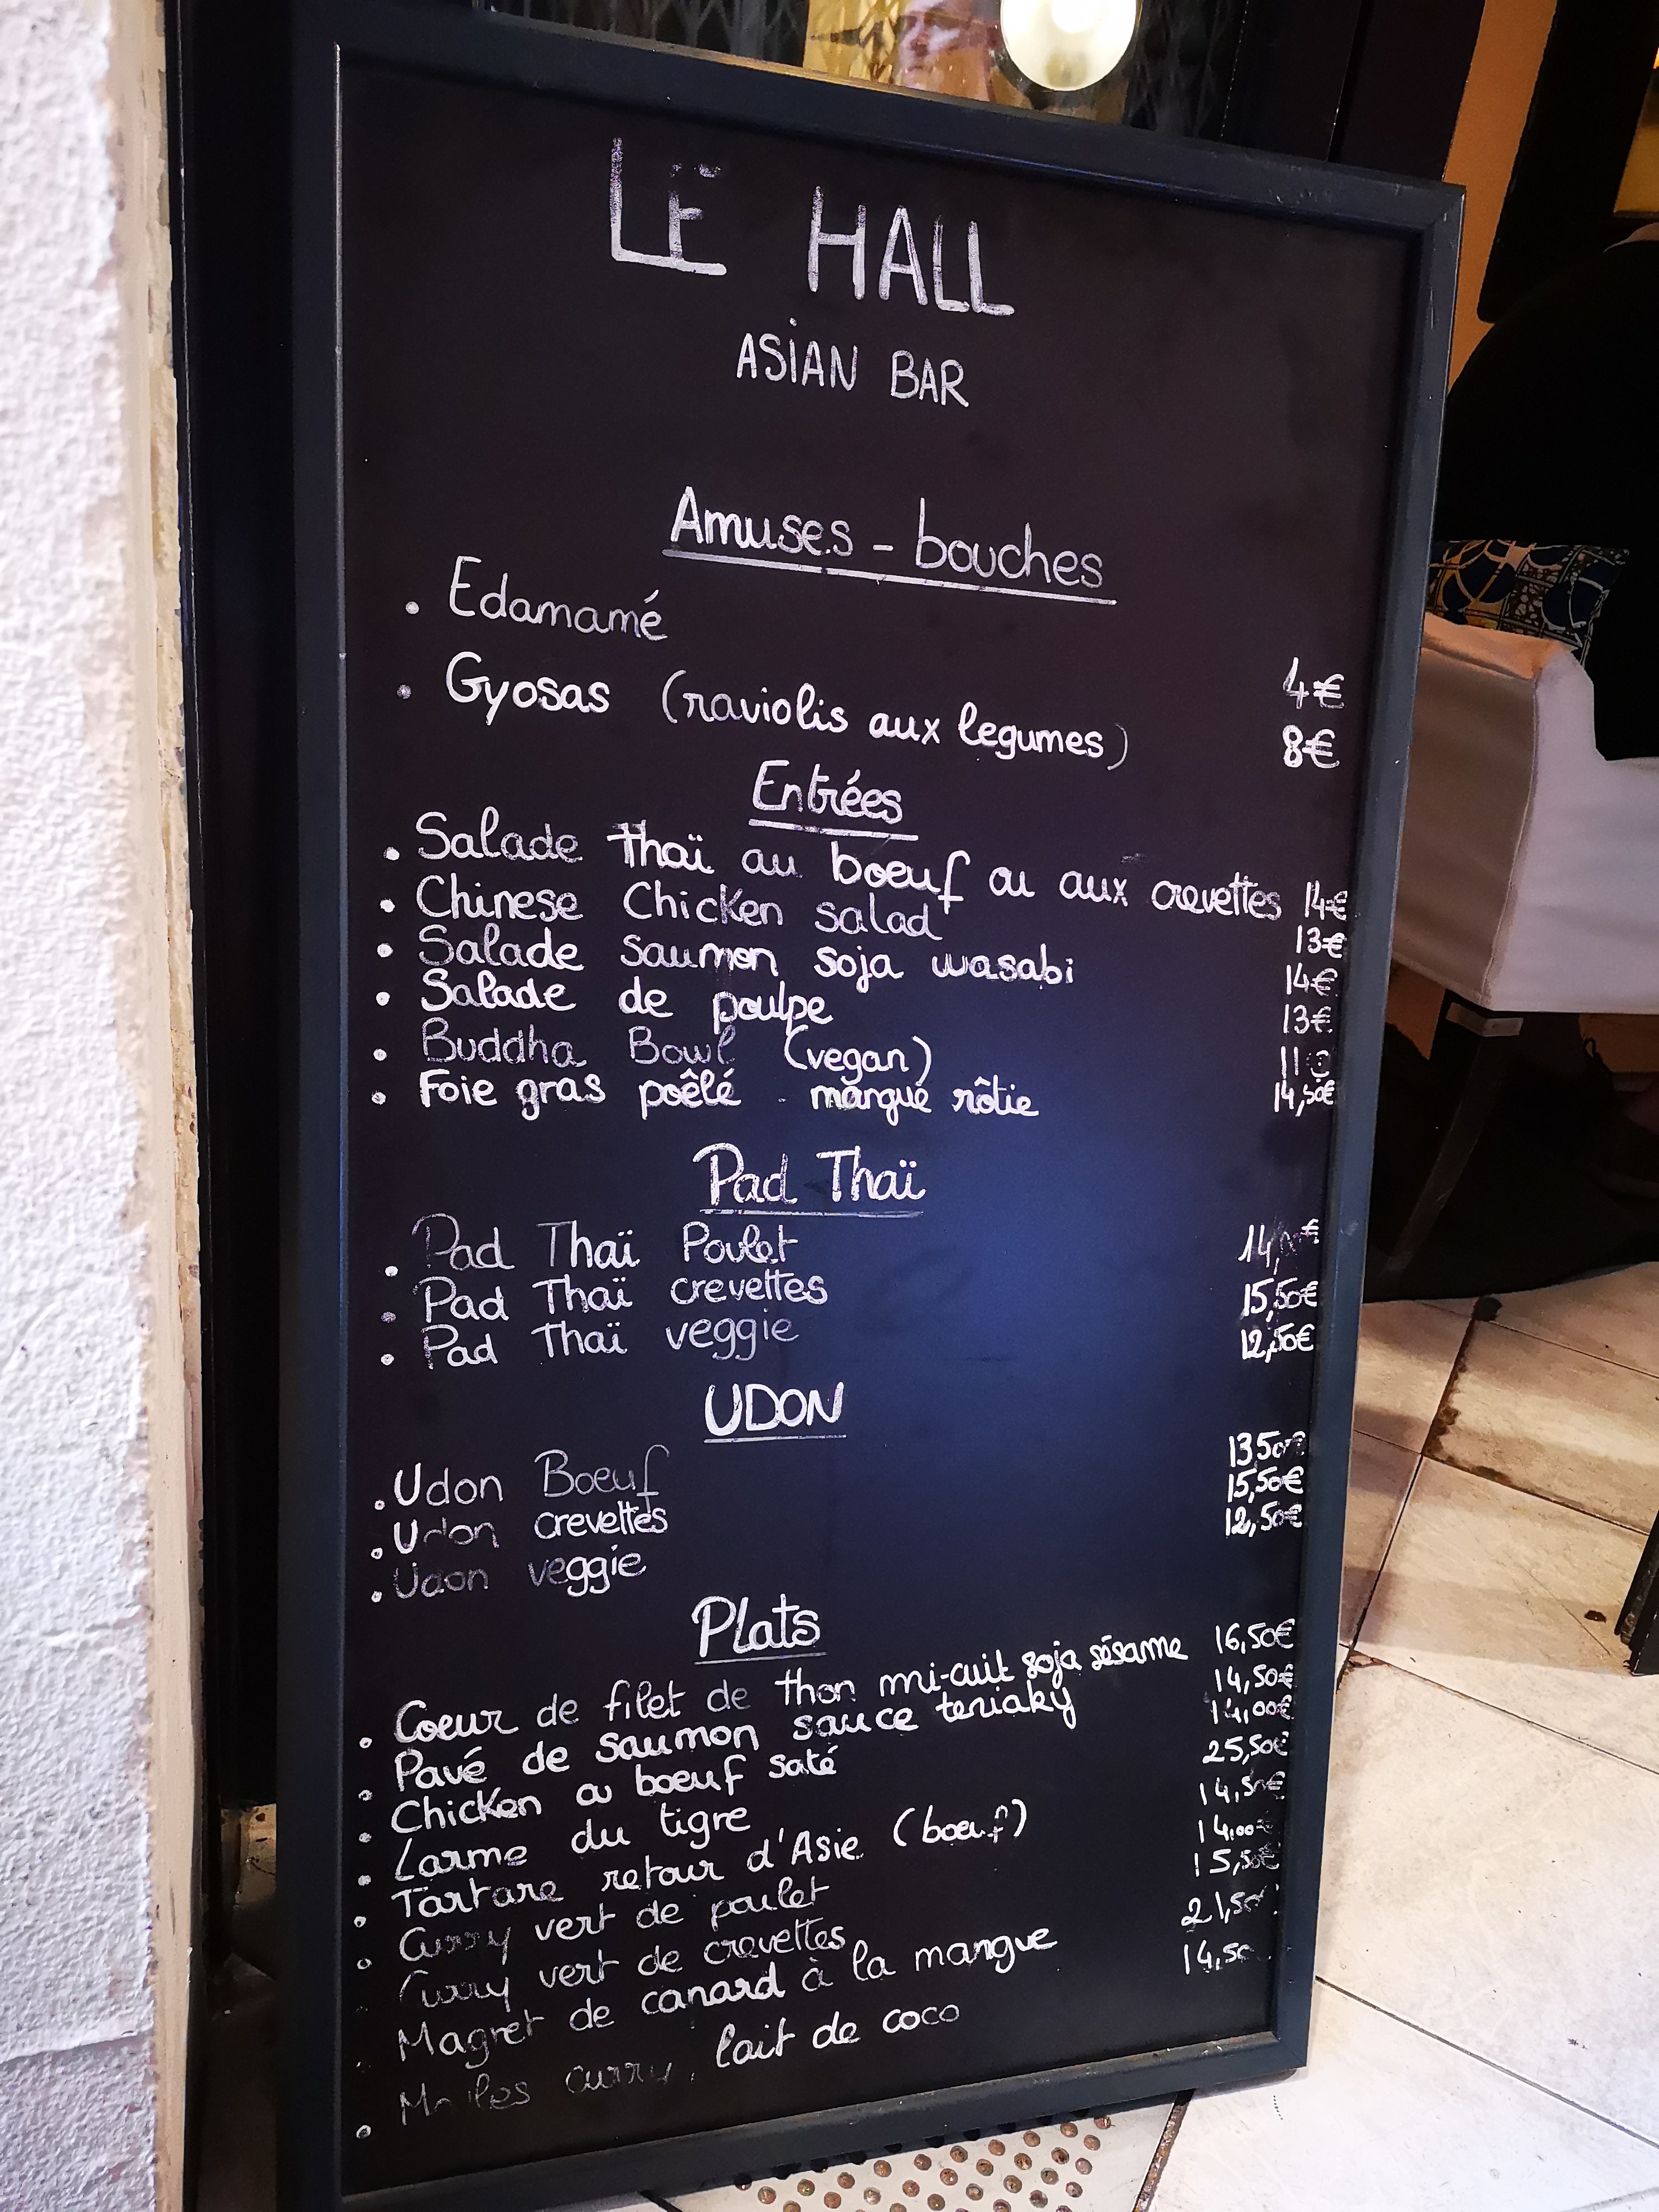 LE HALL
ASiAN BAR
Amuses - bouches
. Edamamé 4€
. Gyosas (raviolis aux legumes) 8€
Entrées
. Salade Thaï au boeuf ou aux crevettes 14€
. Chinese Chicken salad 13€
. Salade saumon soja wasabi 14€
. Salade de poulpe 13€
. Buddha Bowl (vegan) 11
. Foie gras poêlé - mangue rôtie 14,50€
Pad Thaï
. Pad Thaï Poulet 14, €
. Pad Thaï crevettes 15,50€
. Pad Thaï veggie 12,50€
UDON
. Udon Boeuf 13 50€
. Udon crevettes 15,50€
. Udon veggie 12,50€
Plats
. Coeur de filet de thon mi-cuit soja sésame 16,50€
. Pavé de saumon sauce teriaky 14,50€
. Chicken ou boeuf saté 14,00€
. Larme du tigre 25,50€
. Tartare retour d'Asie (boeuf) 14,50€
. Curry vert de poulet 14,00€
. Curry vert de crevettes 15,50€
. Magret de canard à la mangue 21,50
. curry, lait de coco 14,50